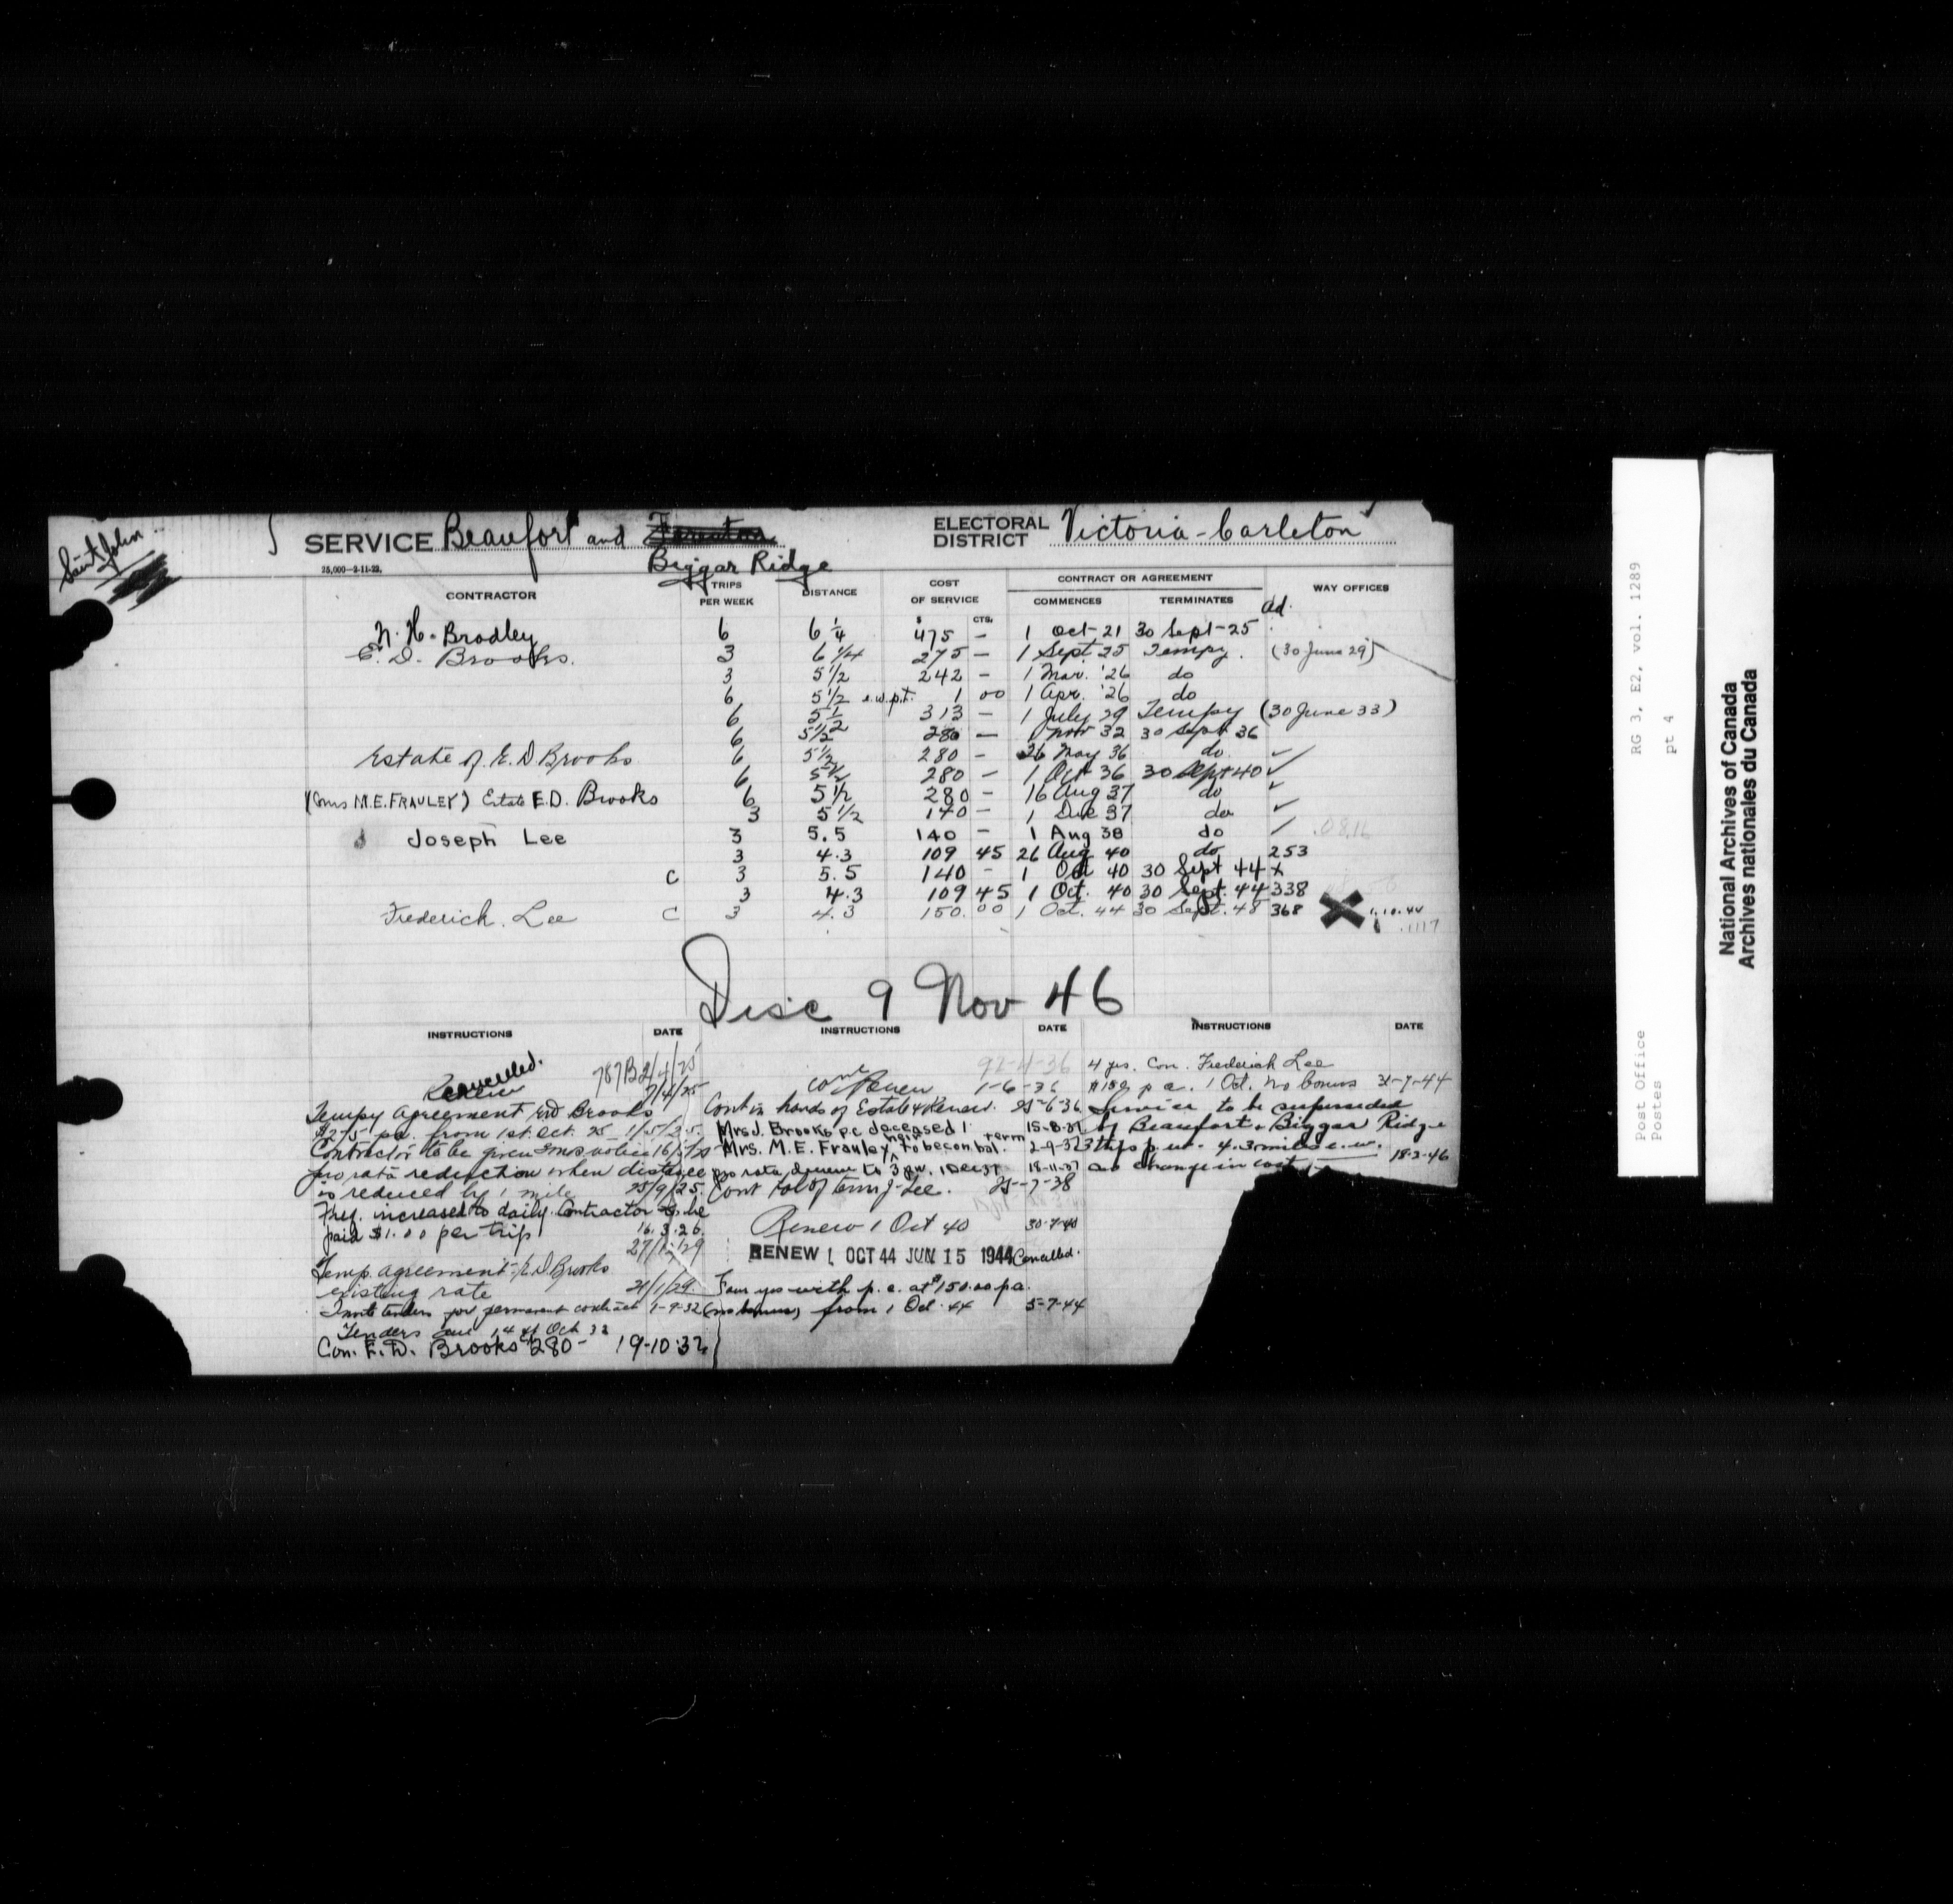 Saint John
SERVICE Beaufort and
Biggar Ridge
ELECTORAL DISTRICT Victoria-Carleton
25,000—2-11-22.
CONTRACTOR TRIPS PER WEEK DISTANCE COST OF SERVICE CONTRACT OR AGREEMENT WAY OFFICES
$ CTS. COMMENCES TERMINATES ad.
N. H. Bradley 6 6 1/4 475 — 1 Oct 21 30 Sept-25
E. D. Brooks. 3 6 1/4 275 — 1 Sept 25 Tempy. (30 June 29)
3 5 1/2 242 — 1 Mar. '26 do
6 5 1/2 e.w.p.t. 1 00 1 Apr. '26 do
6 5 1/2 313 — 1 July 29 Tempy (30 June 33)
6 5 1/2 280 — 1 Nov 32 30 Sept 36
Estate of E. D Brooks 6 5 1/2 280 — 26 May 36 do ✓
6 5 1/2 280 — 1 Oct 36 30 Sept 40 ✓
(Mrs M.E. FRAULEY) Estate E.D. Brooks 6 5 1/2 280 — 16 Aug 37 do ✓
3 5 1/2 140 — 1 Dec 37 do ✓
Joseph Lee 3 5.5 140 — 1 Aug 38 do ✓
3 4.3 109 45 26 Aug 40 do 253
C 3 5.5 140 - 1 Oct 40 30 Sept 44 x
3 4.3 109 45 1 Oct. 40 30 Sept. 44 338
Frederick. Lee C 3 4.3 150.00 1 Oct. 44 30 Sept. 48 368 1.10.44
.1117
Disc 9 Nov 46
INSTRUCTIONS DATE
Cancelled. 787B 2/4/25
Renew 7/4/25
Tempy agreement E D Brooks
$275 pa. from 1st. Oct. 25 1/5/25.
Contractor to be given 3 mos notice 16/5/25
pro rata reduction when distance
is reduced by 1 mile 25/9/25.
Freq. increased to daily. Contractor to be
paid $1.00 per trip 16.3.26.
27/12/29
Temp. agreement E. D. Brooks
existing rate 21/1/29.
Invite tenders for permanent contract 1-9-32
Tenders due 14 of Oct 32
Con. E. D. Brooks 280- 19-10-32
INSTRUCTIONS DATE
Renew 1-6-36
Cont in hands of Estate & Renew. 25-6-36
Mrs J. Brooks p.c deceased 15-8-37
Mrs. M. E. Frauley, heir to be con. bal. term 2-9-37
pro rata to 3 pw. 1 Dec 37 18-11-37
Cont bal of term J. Lee. 25-7-38
Renew 1 Oct 40 30-7-40
RENEW 1 OCT 44 JUN 15 1944 Cancelled.
Four yrs with p. c. at $150.00 pa.
(no bonus) from 1 Oct. 44 5-7-44
INSTRUCTIONS DATE
4 yrs. Con. Frederick Lee
$150 p a. 1 Oct. No bonus 31-7-44
Service to be superseded
by Beaufort & Biggar Ridge
3 trips p. w. 4.3 miles e.w.
no change in cost 18-3-46
RG 3, E2, vol. 1289
pt 4
Post Office
Postes
National Archives of Canada
Archives nationales du Canada